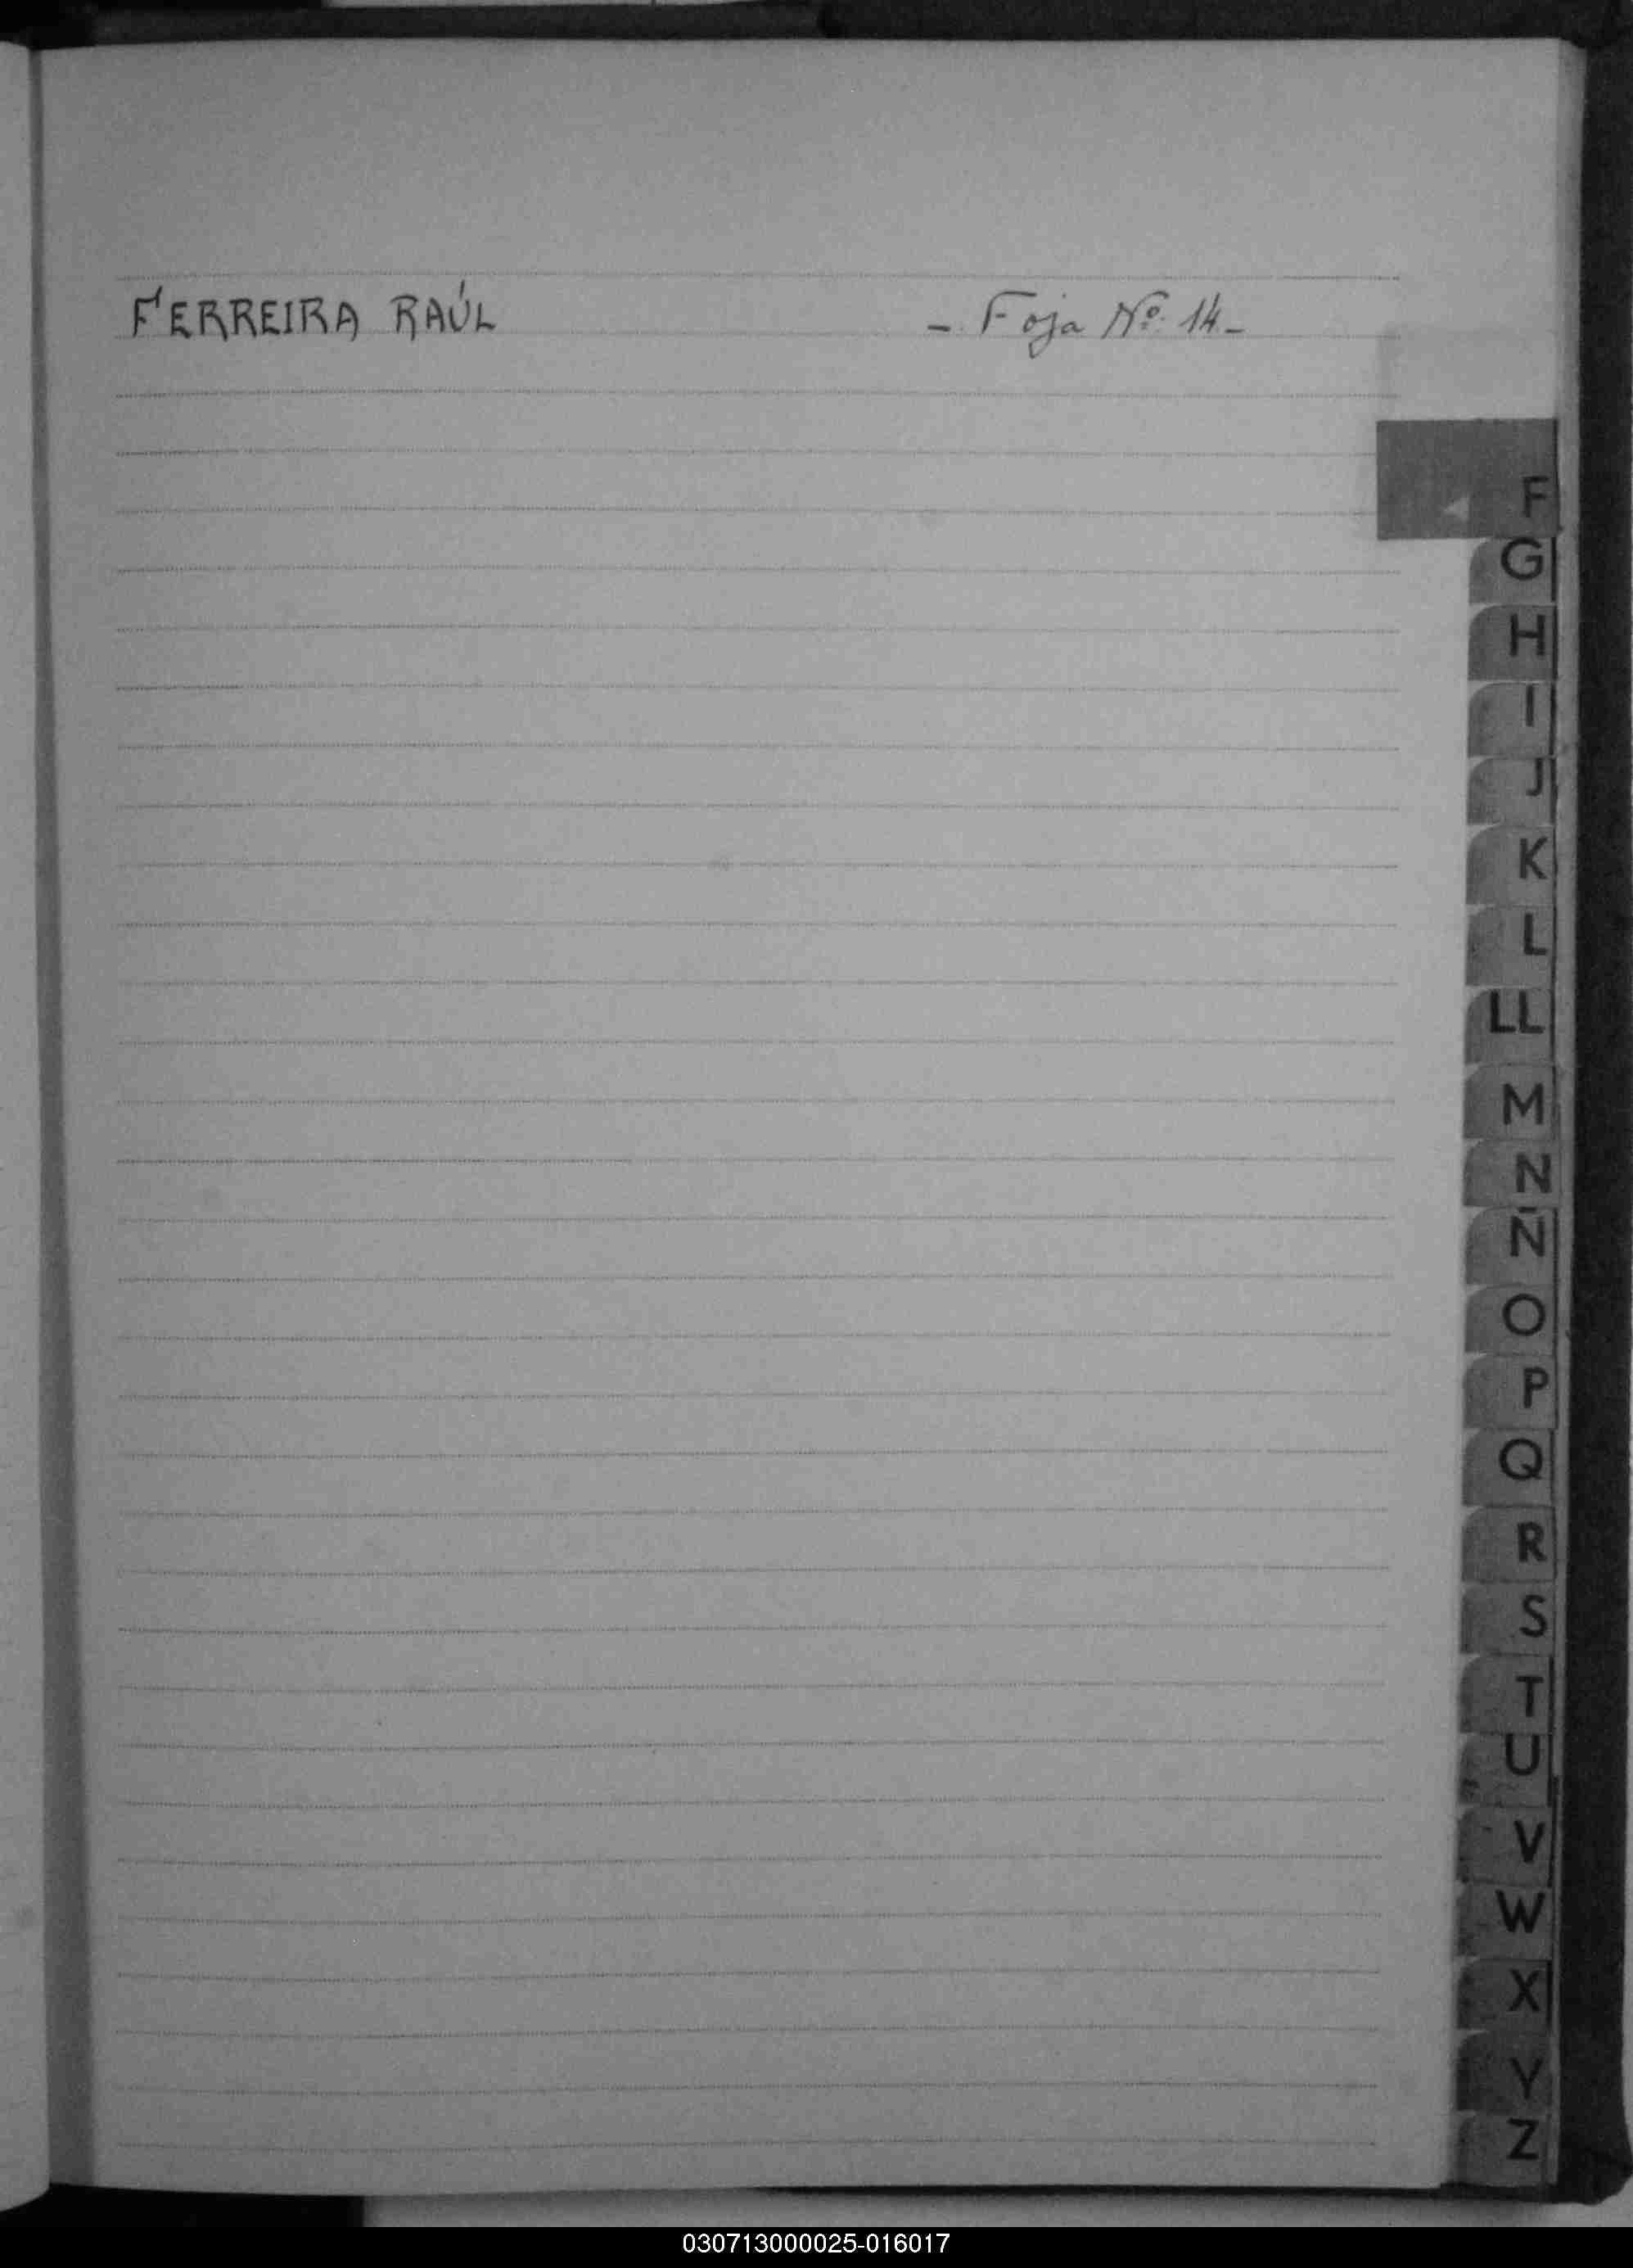 FERREIRA RAÚL - Foja Nº 14-
F
G
H
I
J
K
L
LL
M
N
Ñ
O
P
Q
R
S
T
U
V
W
X
Y
Z
030713000025-016017